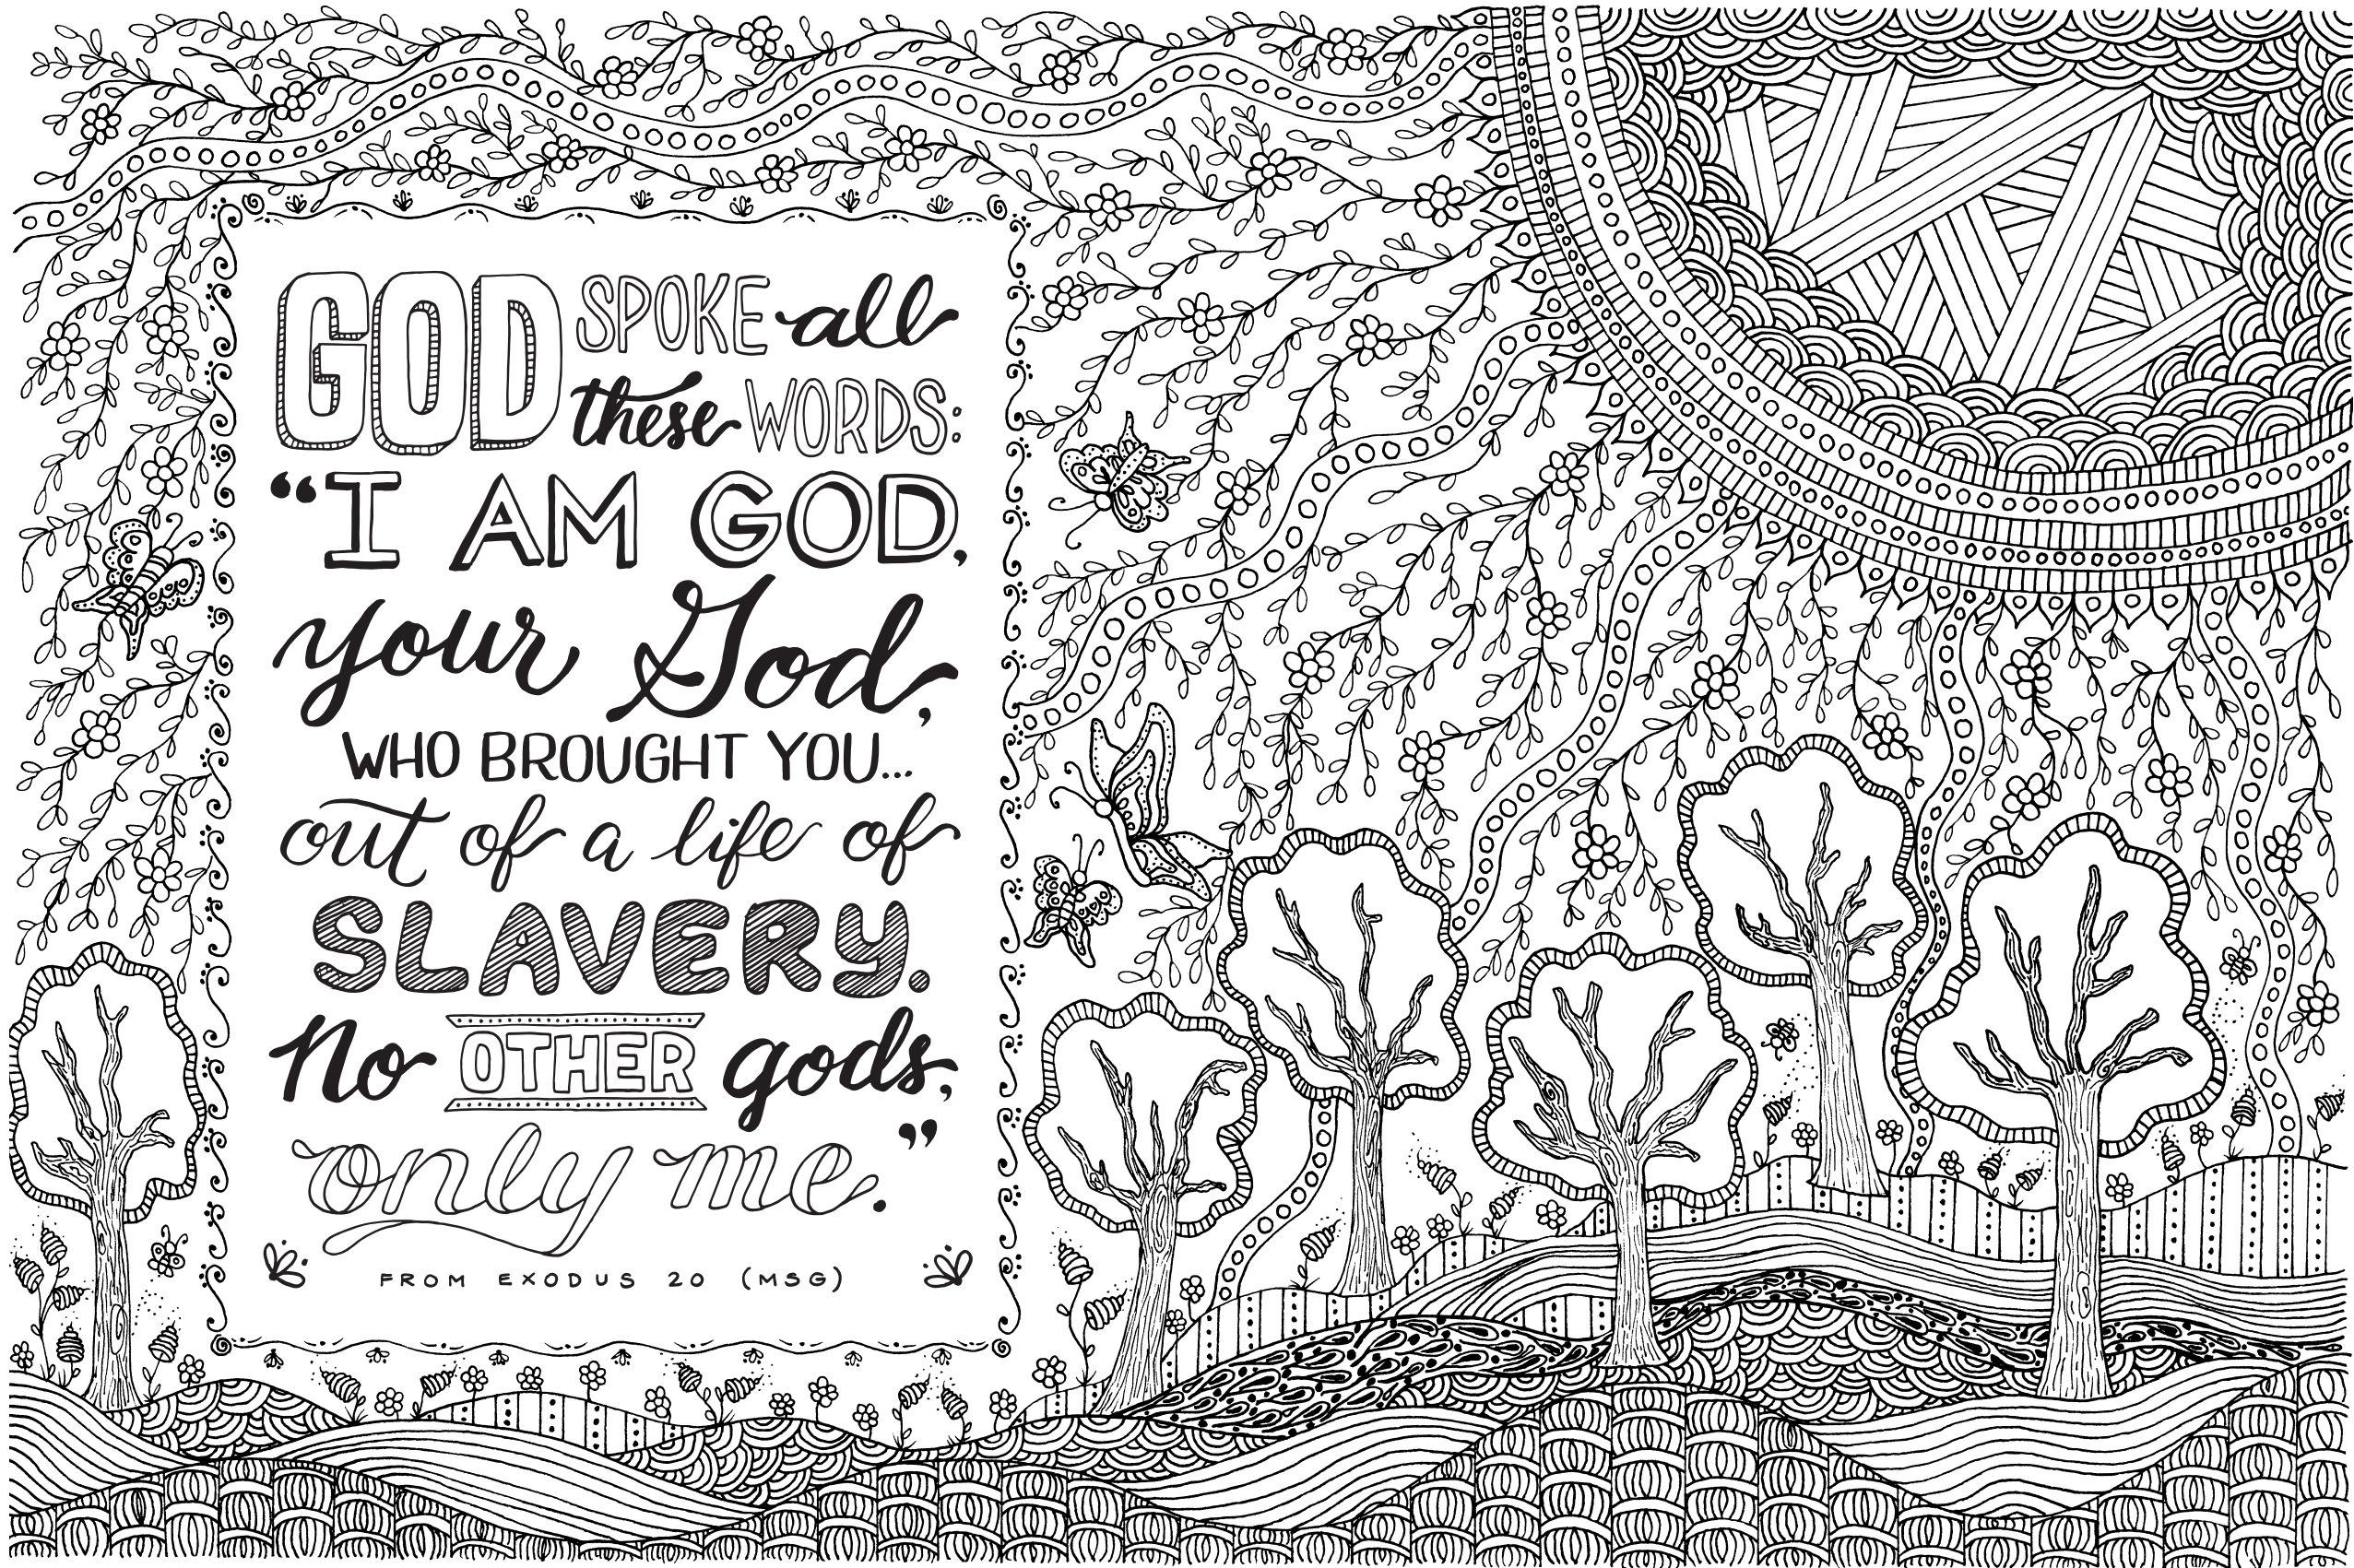 GOD SPOKE all
these WORDS:
“I AM GOD,
your God,
WHO BROUGHT YOU...
out of a life of
SLAVERY.
No OTHER gods,
only me.”
FROM EXODUS 20 (MSG)